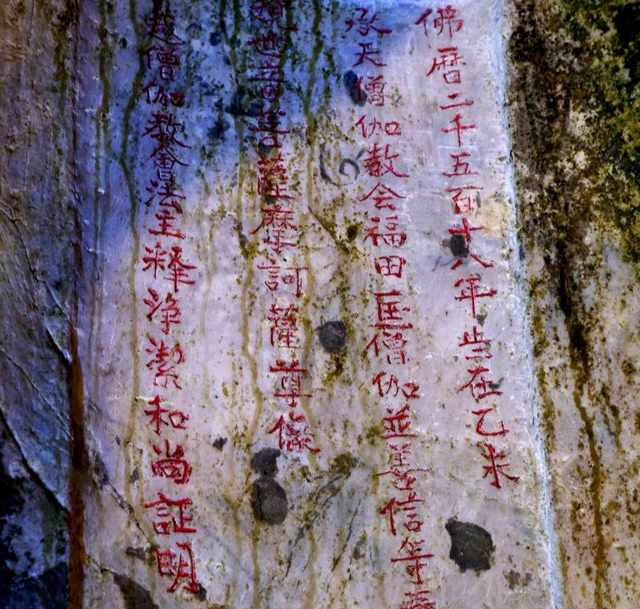 佛曆二千五百十八年歲在乙未
承天僧伽教会福田匡僧伽並善信等
觀世音菩薩摩訶薩尊像
僧伽教會法主释淨潔和尚証明